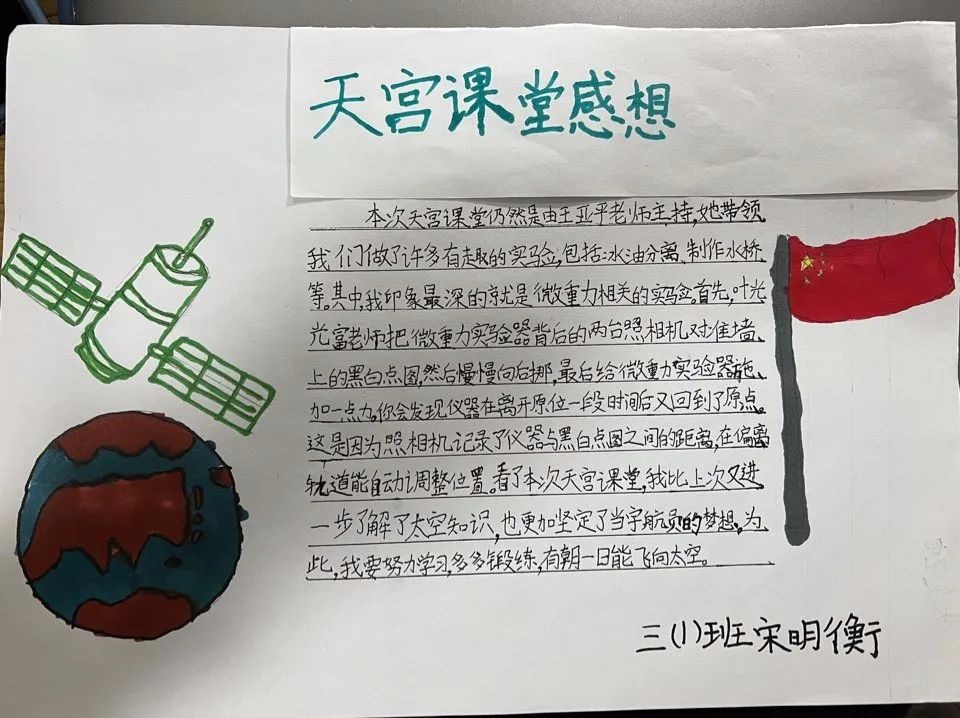 天宫课堂感想
本次天宫课堂仍然是由王亚平老师主持,她带领
我们做了许多有趣的实验,包括:水油分离、制作水桥
等。其中,我印象最深的就是微重力相关的实验。首先,叶光
光富老师把微重力实验器背后的两台照相机对准墙
上的黑白点图,然后慢慢向后挪,最后给微重力实验器施
加一点力。你会发现仪器在离开原位一段时间后又回到了原点。
这是因为照相机记录了仪器与黑白点图之间的距离,在偏离
轨道能自动调整位置。看了本次天宫课堂,我比上次又进
一步了解了太空知识,也更加坚定了当宇航员的梦想。为
此,我要努力学习,多多锻练,有朝一日能飞向太空。
三(1)班宋明衡